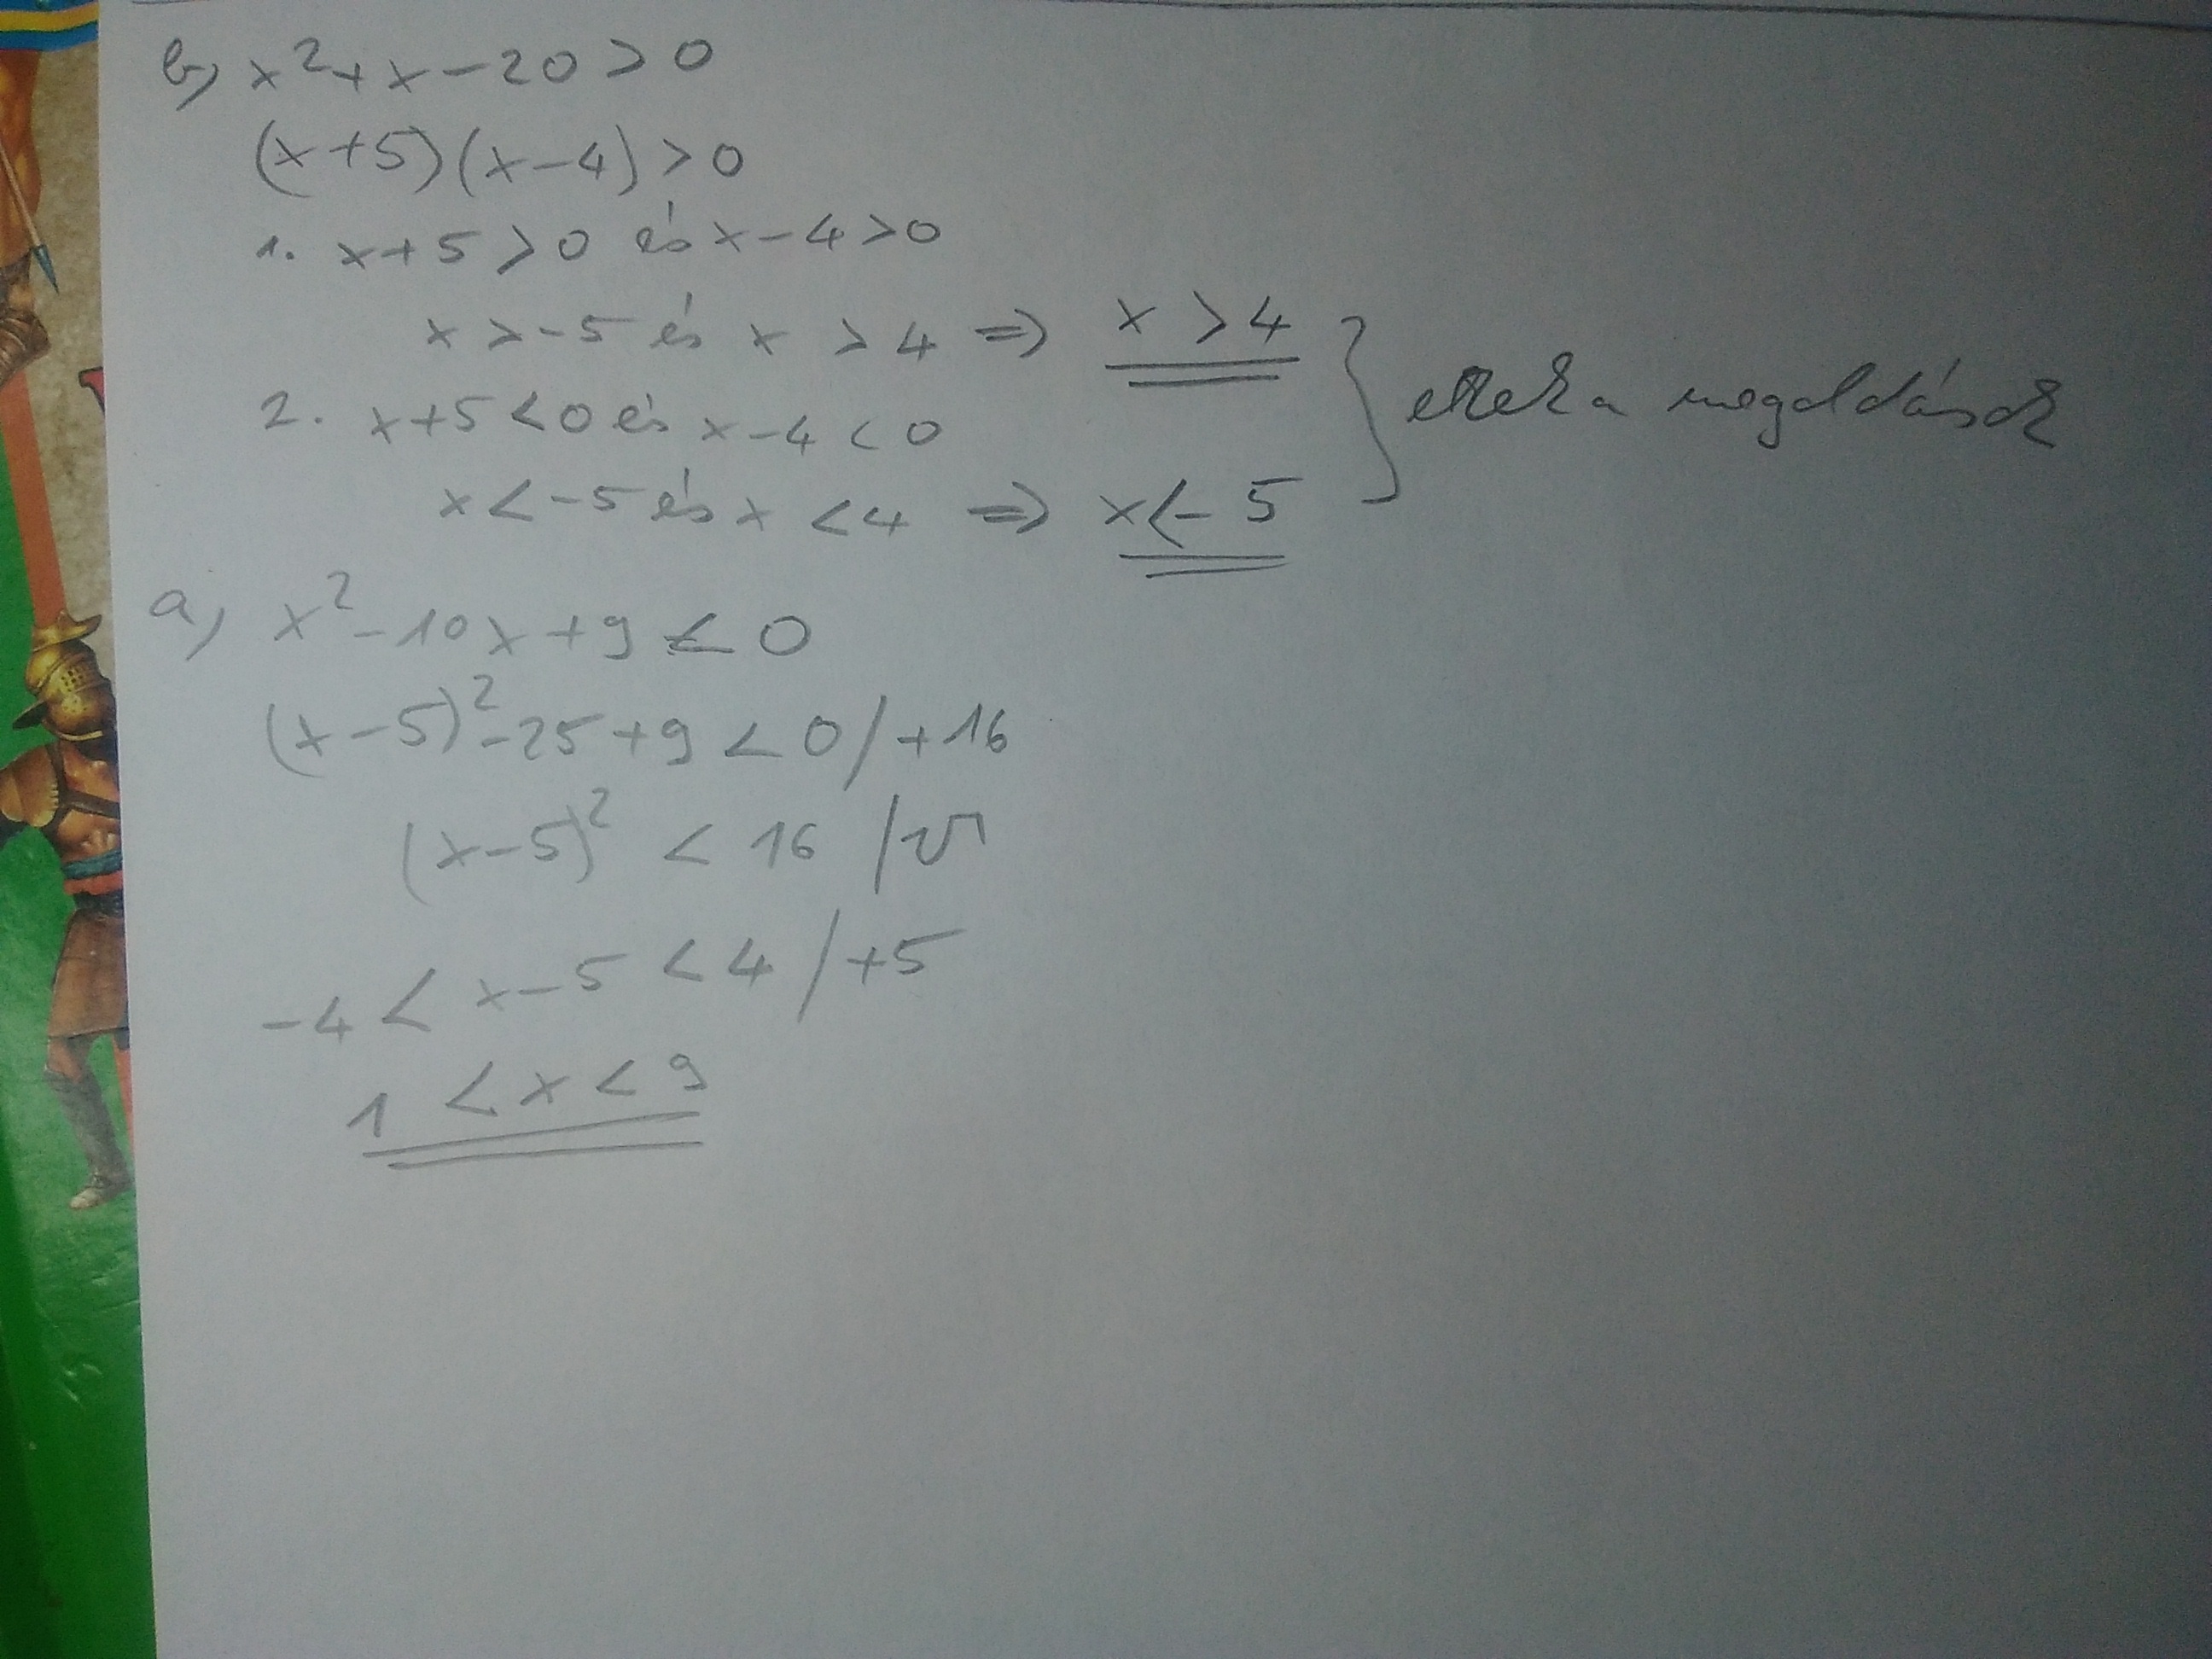 b, x²+x-20>0
(x+5)(x-4)>0
1. x+5>0 és x-4>0
x>-5 és x>4 ⇒ x>4
ezek a megoldások
2. x+5<0 és x-4<0
x<-5 és x<4 ⇒ x<-5
a, x²-10x+9<0
(x-5)²-25+9<0/+16
(x-5)²<16/√
-4<x-5<4/+5
1<x<9